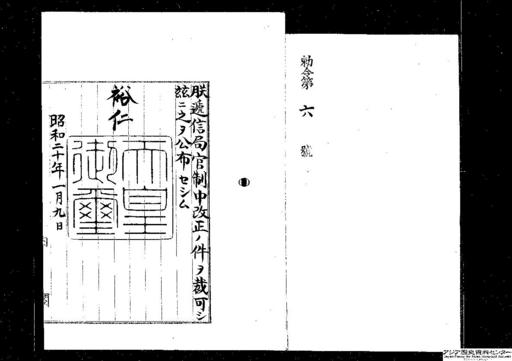 勅令第六號
朕遞信局官制中改正ノ件ヲ裁可シ
玆ニ之ヲ公布セシム
裕仁
天皇御璽
昭和二十年一月九日
内閣
アジア歴史資料センター
Japan Center for Asian Historical Records